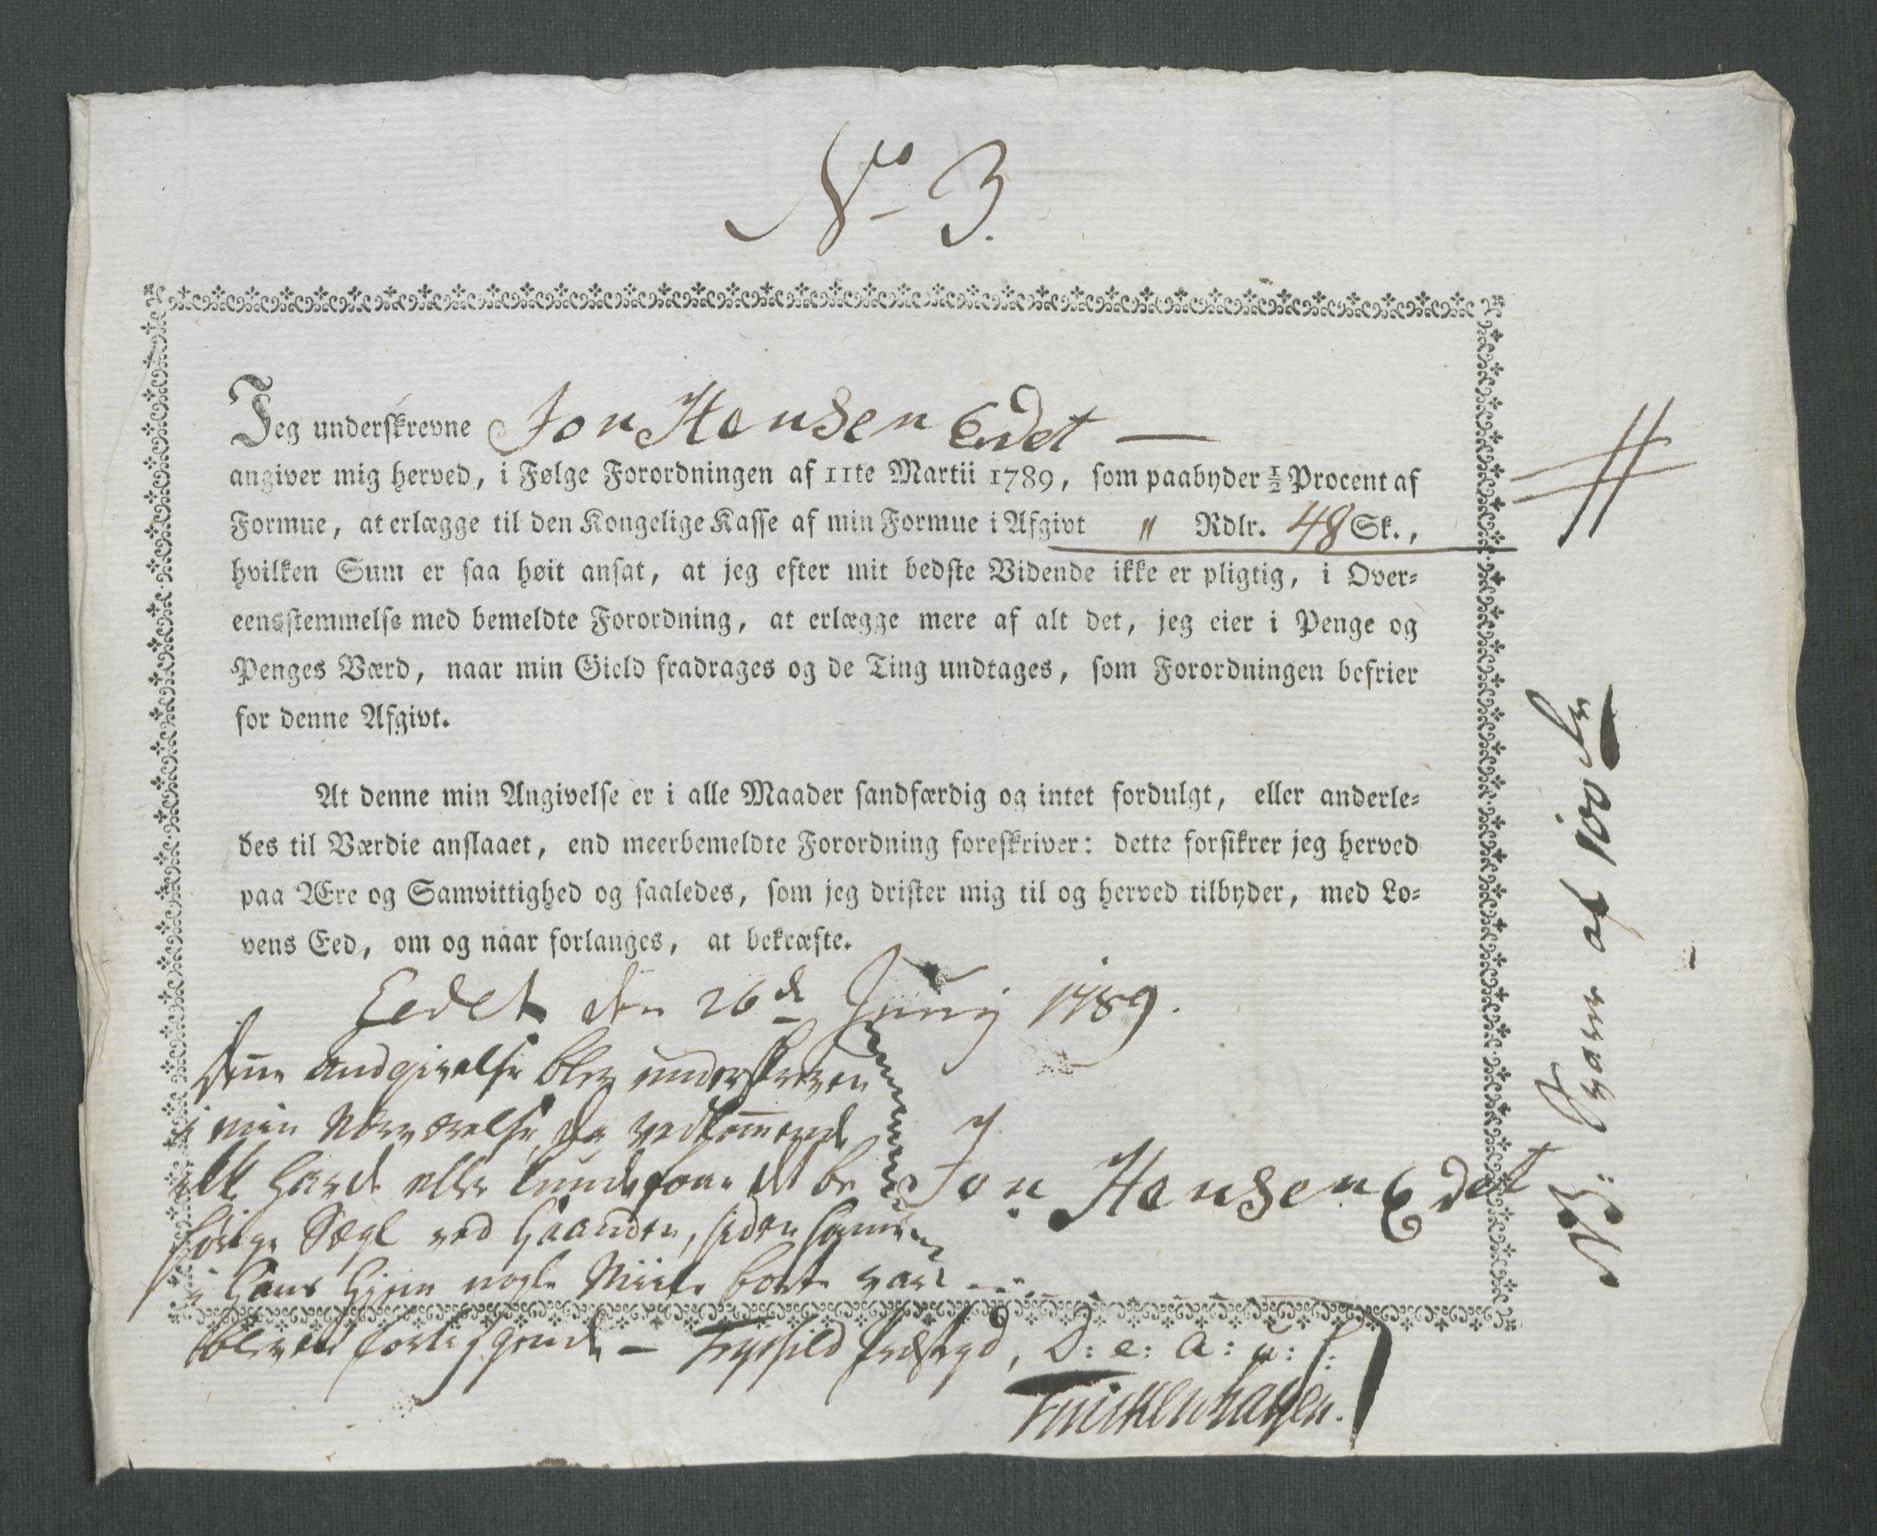 No 3.
Jeg underskrevne Jon Hansen Edet —
angiver mig herved, i Følge Forordningen af 11te Martii 1789, som paabyder ½ Procent af
Formue, at erlægge til den Kongelige Kasse af min Formue i Afgivt " Rdlr. 48 Sk.,
hvilken Sum er saa høit ansat, at jeg efter mit bedste Vidende ikke er pligtig, i Over-
eensstemmelse med bemeldte Forordning, at erlægge mere af alt det, jeg eier i Penge og
Penges Værd, naar min Gield fradrages og de Ting undtages, som Forordningen befrier
for denne Afgivt.
At denne min Angivelse er i alle Maader sandfærdig og intet fordulgt, eller anderle-
des til Værdie anslaaet, end meerbemeldte Forordning foreskriver: dette forsikrer jeg herved
paa Ære og Samvittighed og saaledes, som jeg drister mig til og herved tilbyder, med Lo-
vens Eed, om og naar forlanges, at bekræfte.
Eedet den 26de Junij 1789.
denne Andgivelse blev underskreven
i min Nærværelse, da vedkommende
ikke havde eller kunde faae det be
hørige Segl ved Haanden, siden samme
i hans Hjem nogle Miile borte var
bleven forliggende — Trysild Præstegd, D: e: A: u: s:
Finckenhagen.
Jon Hansen Edet
NB: Svarer af 100 rdr